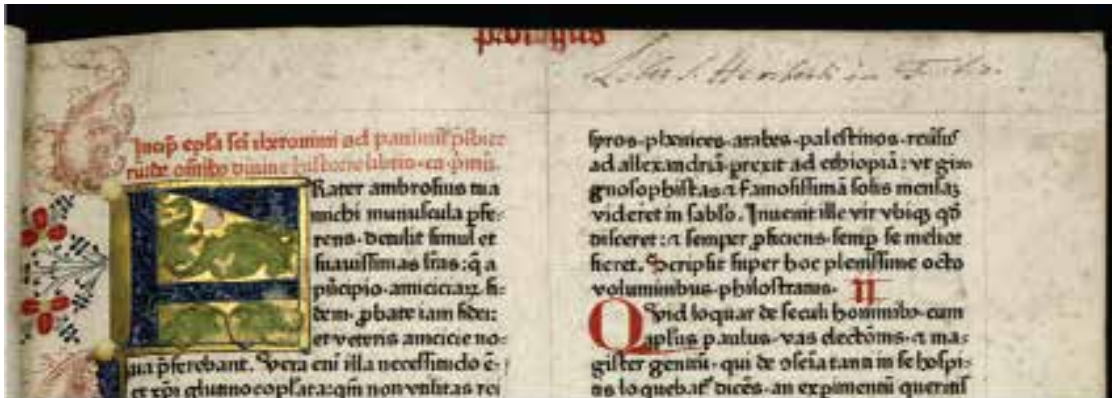 prologus
Liber S. Heriberti in
Incip̄ epl̄a sc̄i iheronimi ad paulinū p̄sbite
rū de om̄ibꝰ diuine historie libris. ca. p̄mū.
FRater ambrosius tua
michi munuscula ꝑfe-
rens. detulit simul et
suauissimas lr̄as: q̄ a
p̄ncipio amiciciaꝝ. fi-
dem ꝓbate iam fidei:
et veteris amicicie no-
ua p̄ferebant. Vera eni illa necessitudo ē.
et xp̄i glutino copl̄ata: qm̄ non vtilitas rei
spros. phenices. arabes. palestinos. reuisus
ad allexandriā. prexit ad ethiopiā: vt gim
gnosophistas ⁊ famosissimā solis mensaꝫ
videret in sablo. Inuenit ille vir vbiqꝫ qd̄
disceret: ⁊ semper ꝓficiens. semꝑ se melior
fieret. Scripsit super hoc plenissime octo
voluminibus. philostratus. II
QVid loquar de seculi hominibꝰ. cum
apl̄us paulus. vas electōnis. ⁊ ma-
gister gentiū. qui de ꝯsciā tanti in se hospi-
tis loquebat᷑ dicēs. an experimentū queritis